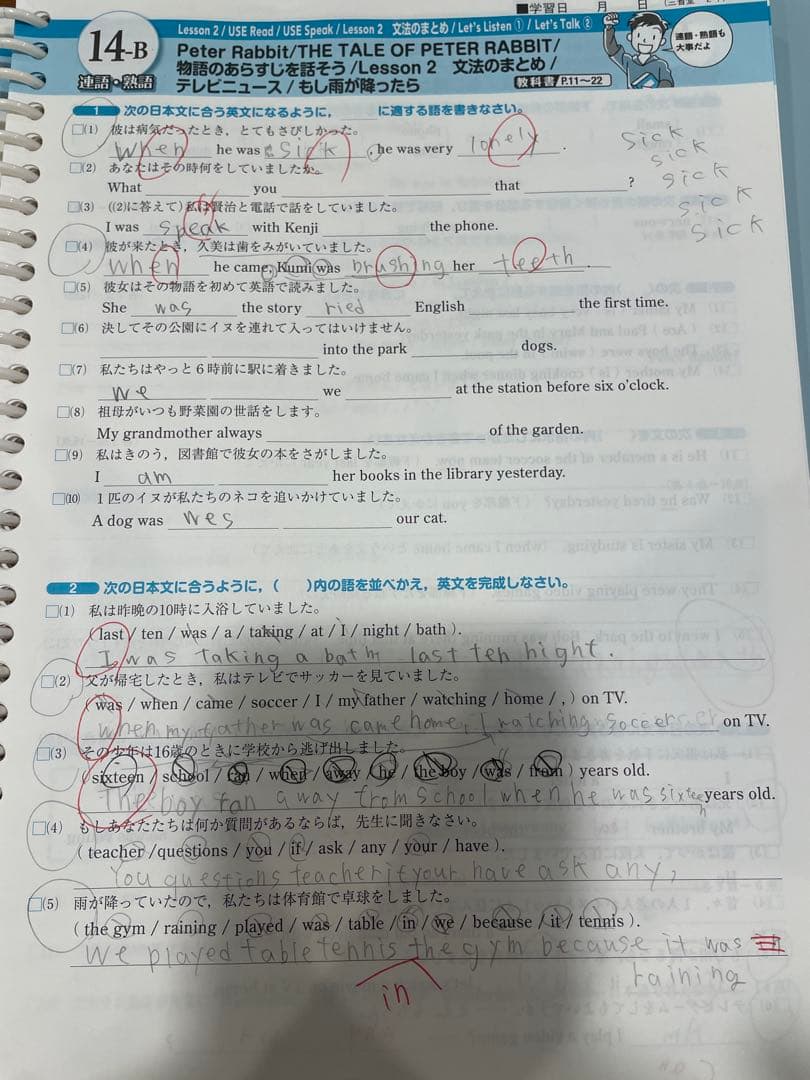 ■学習日 月 日
14-B
連語・熟語
Lesson 2 / USE Read / USE Speak / Lesson 2 文法のまとめ / Let's Listen ① / Let's Talk ②
Peter Rabbit/THE TALE OF PETER RABBIT/
物語のあらすじを話そう/Lesson 2 文法のまとめ/
テレビニュース/もし雨が降ったら
教科書/P.11〜22
連語・熟語も
大事だよ
1 次の日本文に合う英文になるように, に適する語を書きなさい。
□(1) 彼は病気だったとき, とてもさびしかった。
When he was sick, he was very lonely.
sick
sick
sick
sick
sick
□(2) あなたはその時何をしていましたか。
What you that ?
□(3) ((2)に答えて) 私は賢治と電話で話をしていました。
I was speak with Kenji the phone.
□(4) 彼が来たとき, 久美は歯をみがいていました。
When he came, Kumi was brushing her teeth.
□(5) 彼女はその物語を初めて英語で読みました。
She was the story ried English the first time.
□(6) 決してその公園にイヌを連れて入ってはいけません。
into the park dogs.
□(7) 私たちはやっと6時前に駅に着きました。
we we at the station before six o'clock.
□(8) 祖母がいつも野菜園の世話をします。
My grandmother always of the garden.
□(9) 私はきのう, 図書館で彼女の本をさがしました。
I am her books in the library yesterday.
□(10) 1匹のイヌが私たちのネコを追いかけていました。
A dog was wes our cat.
2 次の日本文に合うように, ( )内の語を並べかえ, 英文を完成しなさい。
□(1) 私は昨晩の10時に入浴していました。
( last / ten / was / a / taking / at / I / night / bath ).
I was taking a bath last ten night.
□(2) 父が帰宅したとき, 私はテレビでサッカーを見ていました。
( was / when / came / soccer / I / my father / watching / home / , ) on TV.
when my father was came home, I watching soccer on TV.
□(3) その少年は16歳のときに学校から逃げ出しました。
( sixteen / school / ran / when / away / he / the boy / was / from ) years old.
The boy ran away from school when he was sixteen years old.
□(4) もしあなたたちは何か質問があるならば, 先生に聞きなさい。
( teacher / questions / you / if / ask / any / your / have ).
You questions teacher if your have ask any,
□(5) 雨が降っていたので, 私たちは体育館で卓球をしました。
( the gym / raining / played / was / table / in / we / because / it / tennis ).
We played table tennis the gym because it was
raining
in